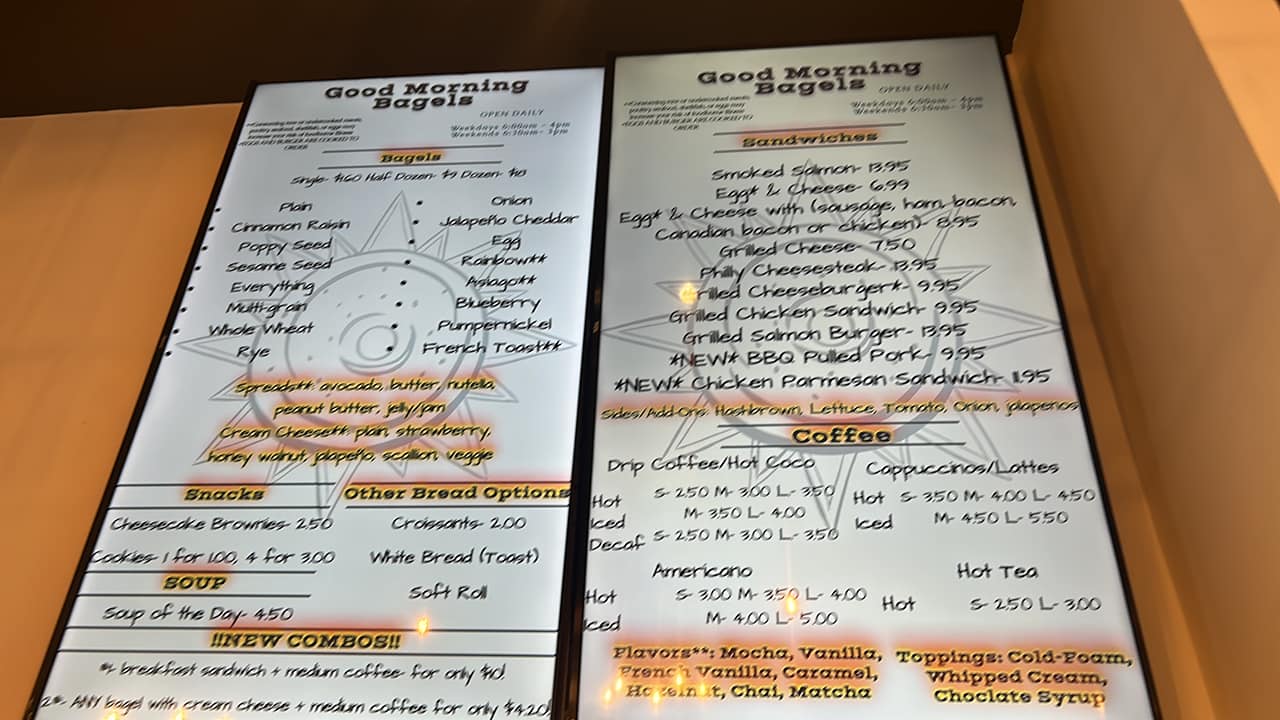 Good Morning
Bagels
OPEN DAILY
Weekdays 6:00am - 4pm
Weekends 6:30am- 3pm
ORDER
Bagels
Single- $1.60 Half Dozen- $9 Dozen-
Plain
Cinnamon Raisin
Poppy Seed
Sesame Seed
Everything
Multi-grain
Whole Wheat
Rye
Onion
Jalapeño Cheddar
Egg
Rainbow**
Asiago**
Blueberry
Pumpernickel
French Toast**
Spreads**: avocado, butter, nutella,
peanut butter, jelly/jam
Cream Cheese**: plain, strawberry,
honey walnut, jalapeño, scallion, veggie
Snacks
Cheesecake Brownies- 2.50
Cookies- 1 for 1.00, 4 for 3.00
Other Bread Options
Croissants- 2.00
White Bread (Toast)
Soft Roll
SOUP
Soup of the Day- 4.50
!!NEW COMBOS!!
breakfast sandwich + medium coffee- for only $10!
ANY bagel with cream cheese + medium coffee for only $4.20!
Good Morning
Bagels
OPEN DAILY
Weekdays 6:00am - 4pm
Weekends 6:30am- 3pm
ORDER
Sandwiches
Smoked Salmon- 13.95
Egg* & Cheese- 6.99
Egg* & Cheese with (sausage, ham, bacon,
Canadian bacon or chicken)- 8.95
Grilled Cheese- 7.50
Philly Cheesesteak- 13.95
Grilled Cheeseburger*- 9.95
Grilled Chicken Sandwich- 9.95
Grilled Salmon Burger- 13.95
*NEW* BBQ Pulled Pork- 9.95
*NEW* Chicken Parmesan Sandwich- 11.95
Sides/Add-Ons: Hashbrown, Lettuce, Tomato, Onion, jalapenos
Coffee
Drip Coffee/Hot Coco
Hot S- 2.50 M- 3.00 L- 3.50
Iced M- 3.50 L- 4.00
Decaf S- 2.50 M- 3.00 L- 3.50
Cappuccinos/Lattes
Hot S- 3.50 M- 4.00 L- 4.50
Iced M- 4.50 L- 5.50
Americano
Hot S- 3.00 M- 3.50 L- 4.00
Iced M- 4.00 L- 5.00
Hot Tea
Hot S- 2.50 L- 3.00
Flavors**: Mocha, Vanilla,
French Vanilla, Caramel,
Hazelnut, Chai, Matcha
Toppings: Cold-Foam,
Whipped Cream,
Choclate Syrup